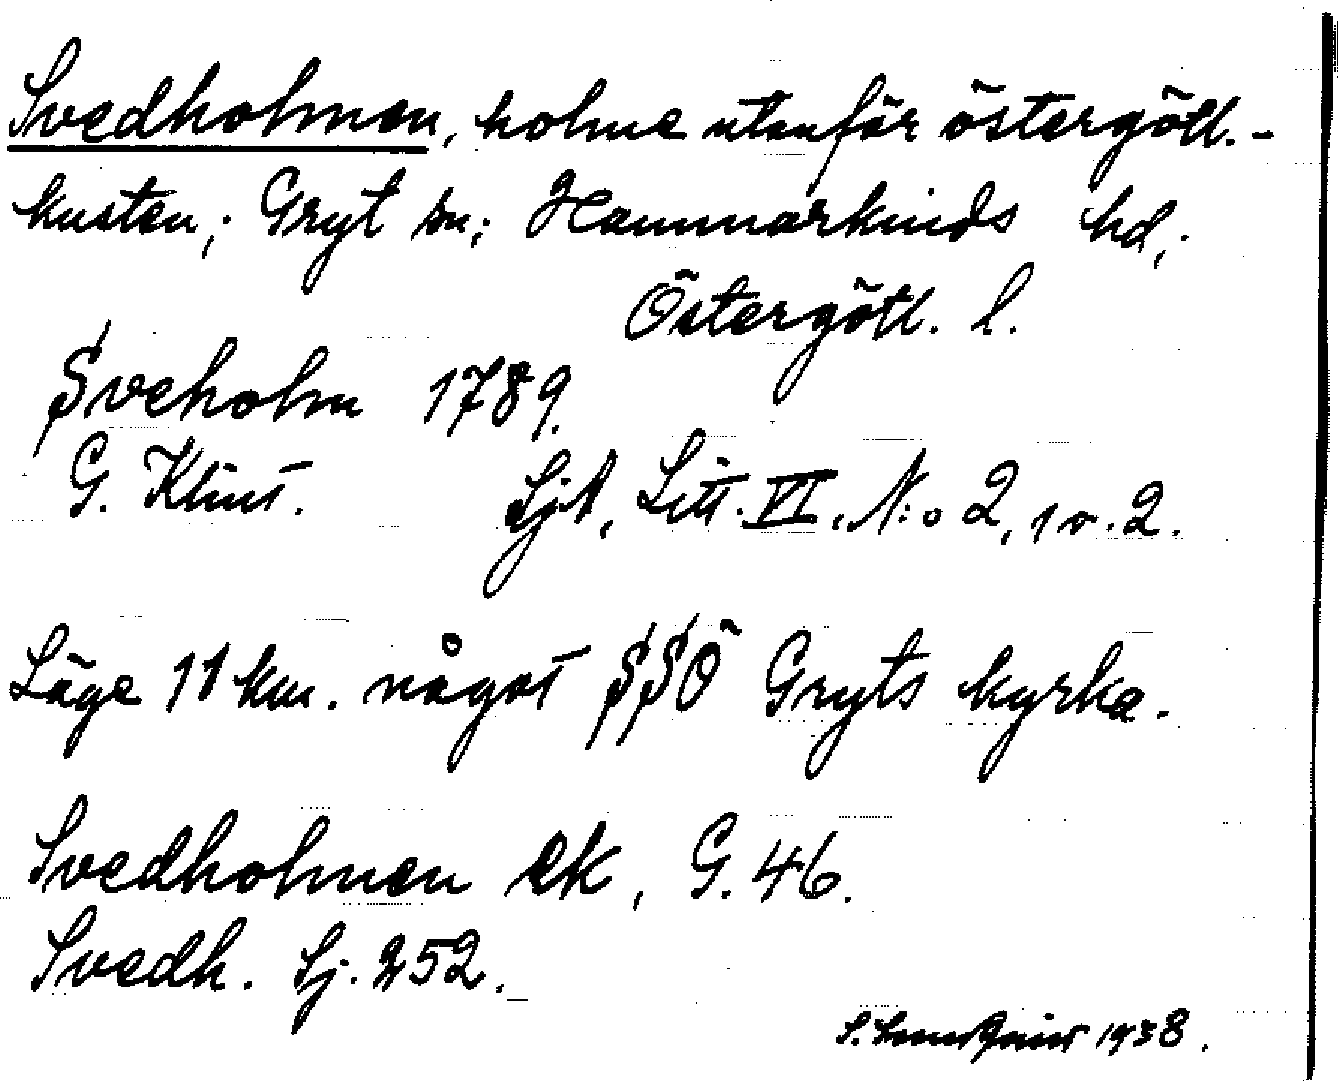 Svedholmen, holme utanför östergötl.-
kusten; Gryt sn; Hammarkinds hd;
Östergötl. l.
Sveholm 1789.
G. Klint. SjA, Litt. VI. N:o 2, 1 o. 2.
Läge 11 km. något SSÖ Gryts kyrka.
Svedholmen ek, G. 46.
Svedh. Sj. 252.
S. 1938.